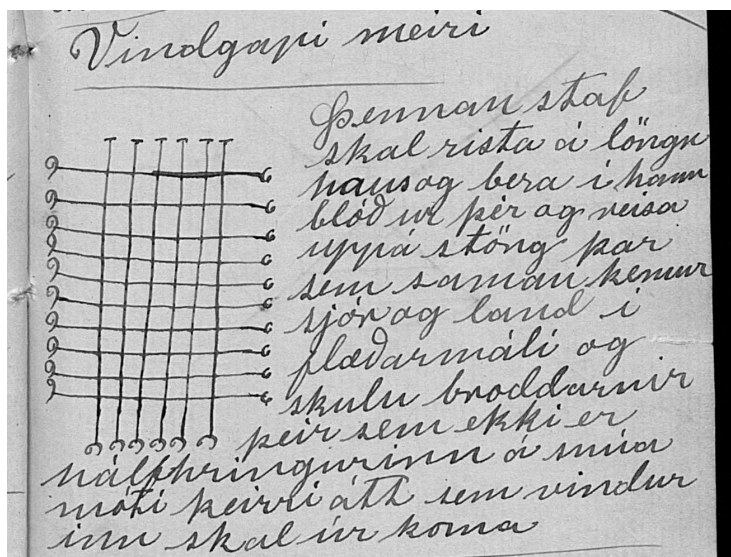 Vindgapi meiri
Þennan staf
skal rista á löngu
haus og bera í hann
blóð úr þér og reisa
uppá stöng þar
sem saman kemur
sjór og land í
flæðarmáli og
skulu broddarnir
þeir sem ekki er
hálfhringurinn á snúa
móti þeirri átt sem vindur
inn skal úr koma